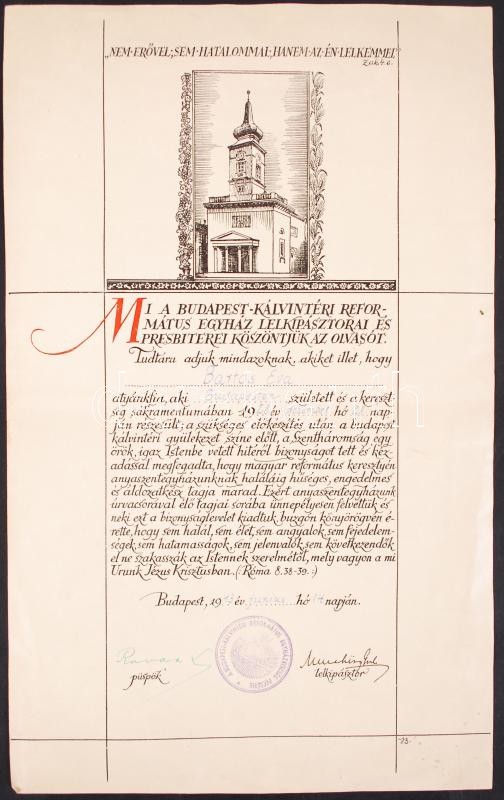 „NEM·ERŐVEL; SEM·HATALOMMAL; HANEM·AZ·ÉN·LELKEMMEL”
Zak. 4. 6.
MI A BUDAPEST-KÁLVINTÉRI REFOR-
MÁTUS EGYHÁZ LELKIPÁSZTORAI ÉS
PRESBITEREI KÖSZÖNTJÜK AZ OLVASÓT.
Tudtára adjuk mindazoknak, akiket illet, hogy
Bartos Éva
atyánkfia, aki Budapesten született és a kereszt-
ség sákramentumában 19 év hó nap-
ján részesült; a szükséges előkészítés után a budapest
kálvintéri gyülekezet színe előtt, a Szentháromság egy
örök, igaz Istenbe vetett hitéről bizonyságot tett és kéz-
adással megfogadta, hogy magyar református keresztyén
anyaszentegyházunknak haláláig hűséges, engedelmes
és áldozatkész tagja marad. Ezért anyaszentegyházunk
úrvacsorával élő tagjai sorába ünnepélyesen felvettük és
neki ezt a bizonyságlevelet kiadtuk, buzgón könyörögvén é-
rette, hogy sem halál, sem élet, sem angyalok, sem fejedelem-
ségek, sem hatalmasságok, sem jelenvalók, sem következendők
el ne szakasszák az Istennek szerelmétől, mely vagyon a mi
Urunk Jézus Krisztusban. (: Róma 8. 38-39. :)
Budapest, 19 év hó napján.
püspök
lelkipásztor